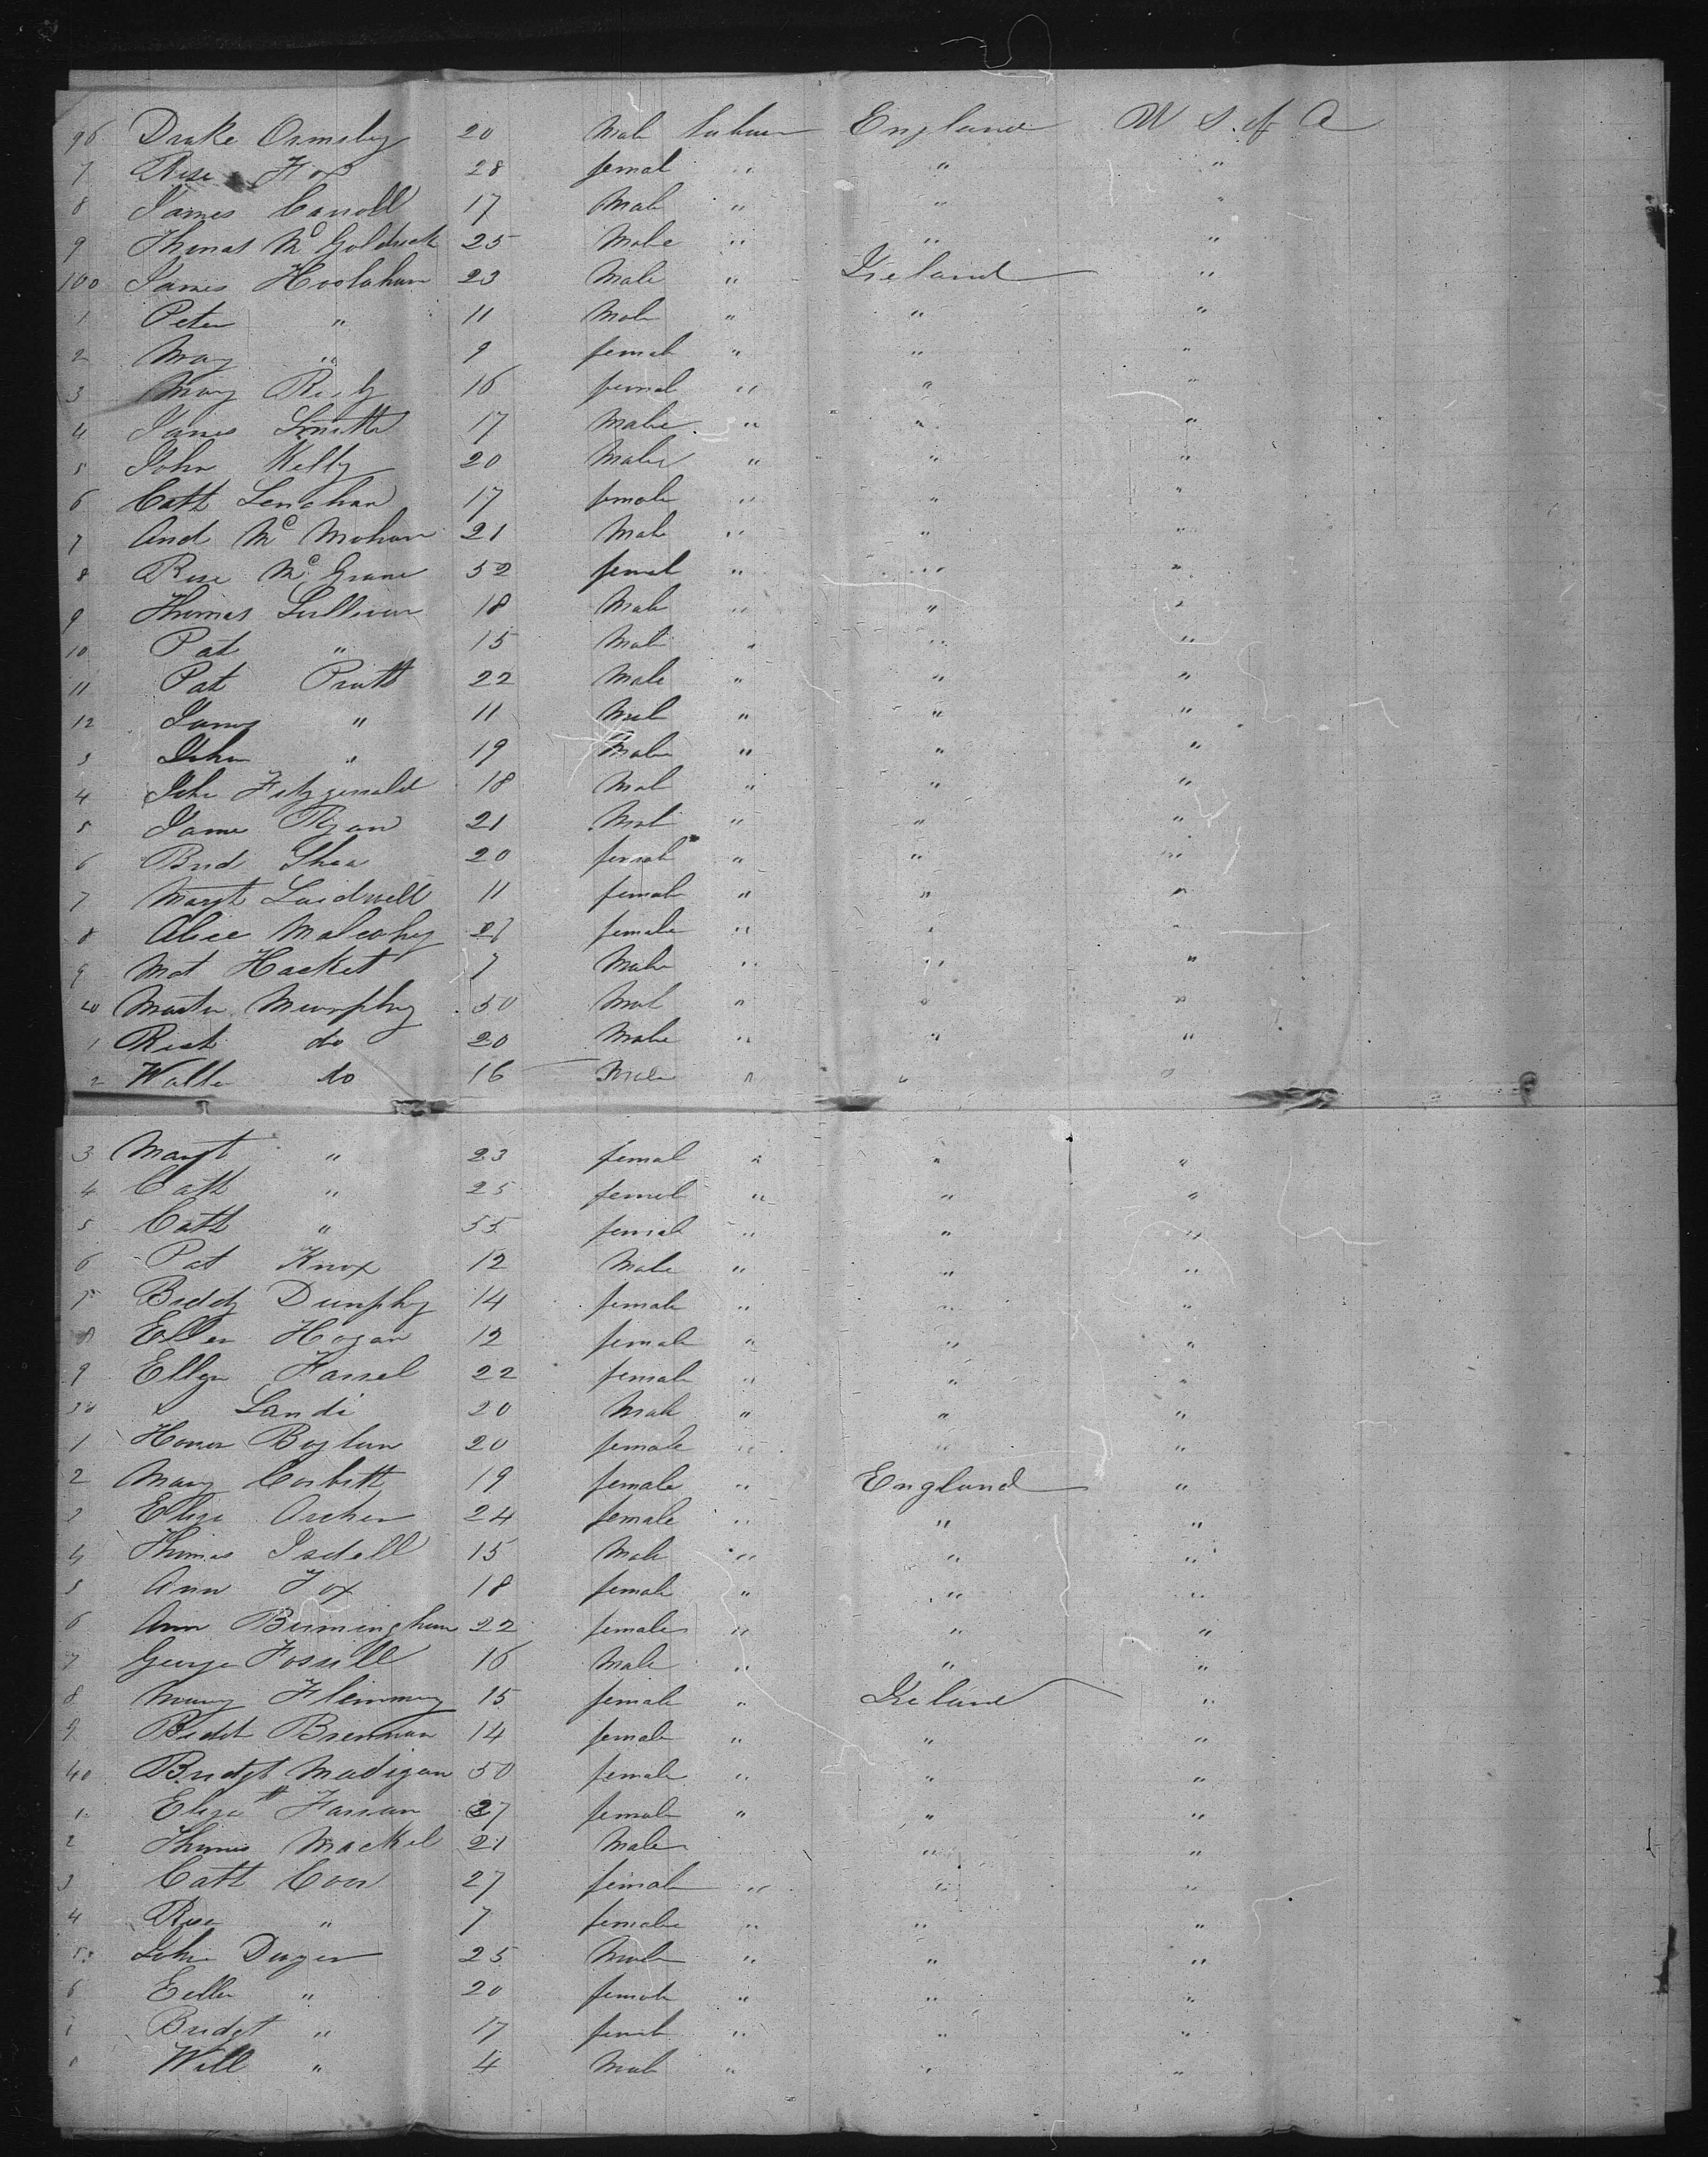 96 Drake Ormsby 20 Male Labour England U S. of A
7 Rose Fox 28 femal " " "
8 James Carroll 17 Male " " "
9 Thomas Mc Goldrick 25 Male " " "
100 James Hoolahan 23 Male " Ireland "
1 Peter " 11 Male " " "
2 Mary " 9 femal " " "
3 Mary 16 femal " " "
4 James Smith 17 Male " " "
5 John Kelly 20 Male " " "
6 Cath Lenehan 17 female " " "
7 And Mc Mahon 21 Male " " "
8 Rose Mc Grane 52 femal " " "
9 Thomas Sullivan 18 Male " " "
10 Pat " 15 Male " " "
11 Pat Pratt 22 Male " " "
12 James " 11 Male " " "
3 John " 19 Male " " "
4 John Fitzgerald 18 Male " " "
5 James Ryan 21 Male " " "
6 Brid Shea 20 female " " "
7 Margt Laidwell 11 female " " "
8 Alice Malcahy 21 female " " "
9 Mat Hacket 7 Male " " "
20 Martin Murphy 50 Male " " "
1 Rich do 20 Male " " "
2 Walter do 16 Male " " "
3 Margt " 23 femal " " "
4 Cath " 25 femal " " "
5 Cath " 55 femal " " "
6 Pat Knox 12 Male " " "
7 Biddy Dunphy 14 female " " "
8 Ellen Hogan 12 female " " "
9 Ellen Farrel 22 female " " "
30 " Landi 20 Male " " "
1 Honor Boylan 20 female " " "
2 Mary Corbitt 19 female " England "
3 Eliza Archer 24 female " " "
4 Thomas Isdell 15 Male " " "
5 Ann Fox 18 female " " "
6 Ann Birmingham 22 female " " "
7 George Fossill 16 Male " " "
8 Mary Flemming 15 female " Ireland "
9 Bridt Brennan 14 female " " "
40 Bridgt Madigan 50 female " " "
1 Elizath Farran 27 female " " "
2 Thomas Mackel 21 Male " "
3 Cath Coor 27 female " " "
4 Rose " 7 female " " "
5 John Dwyer 25 Male " " "
6 Ellen " 20 female " " "
7 Bridgt " 17 femal " " "
8 Will " 4 Male " " "